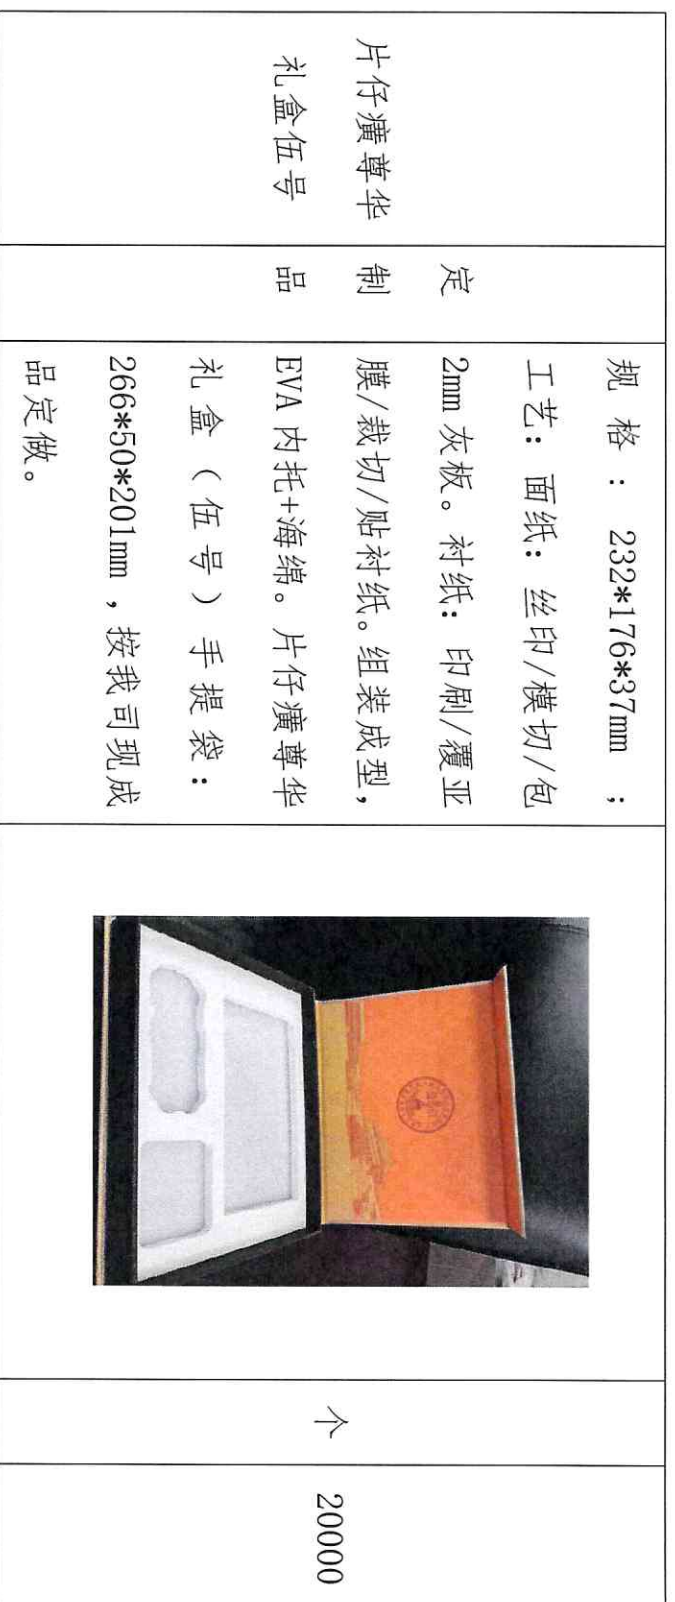 片仔癀尊华
礼盒伍号
定
制
品
规格：232*176*37mm；
工艺：面纸：丝印/模切/包
2mm 灰板。衬纸：印刷/覆亚
膜/裁切/贴衬纸。组装成型，
EVA 内托+海绵。片仔癀尊华
礼盒（伍号）手提袋：
266*50*201mm，按我司现成
品定做。
个
20000